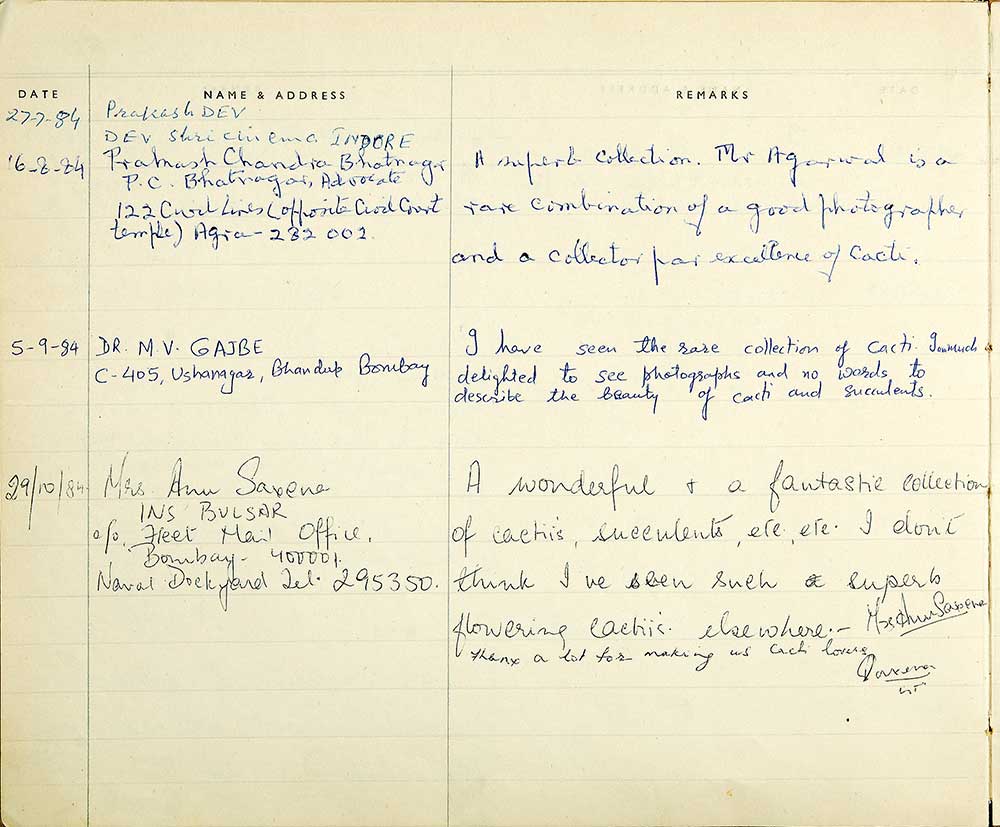 DATE NAME & ADDRESS REMARKS
27-7-84 Prakash DEV
DEV Shri cinema INDORE
16-8-84 Prakash Chandra Bhatnagar
P.C. Bhatnagar, Advocate
122 Civil Lines (opposite Civil Court
temple) Agra - 282 002.
A superb collection. Mr Agarwal is a
rare combination of a good photographer
and a collector par excellence of Cacti.
5-9-84 DR. M.V. GAJBE
C-405, Ushanagar, Bhandup Bombay
I have seen the rare collection of cacti. I am much
delighted to see photographs and no words to
describe the beauty of cacti and succulents.
29/10/84 Mrs. Anu Saxena
INS BULSAR
c/o, Fleet Mail Office,
Bombay - 400001.
Naval Dockyard Tel. 295350.
A wonderful & a fantastic collection
of cactiis, succulents, etc, etc. I don't
think I've seen such a superb
flowering cactiis elsewhere. - Mrs Anu Saxena
thanx a lot for making us cacti lovers
Saxena